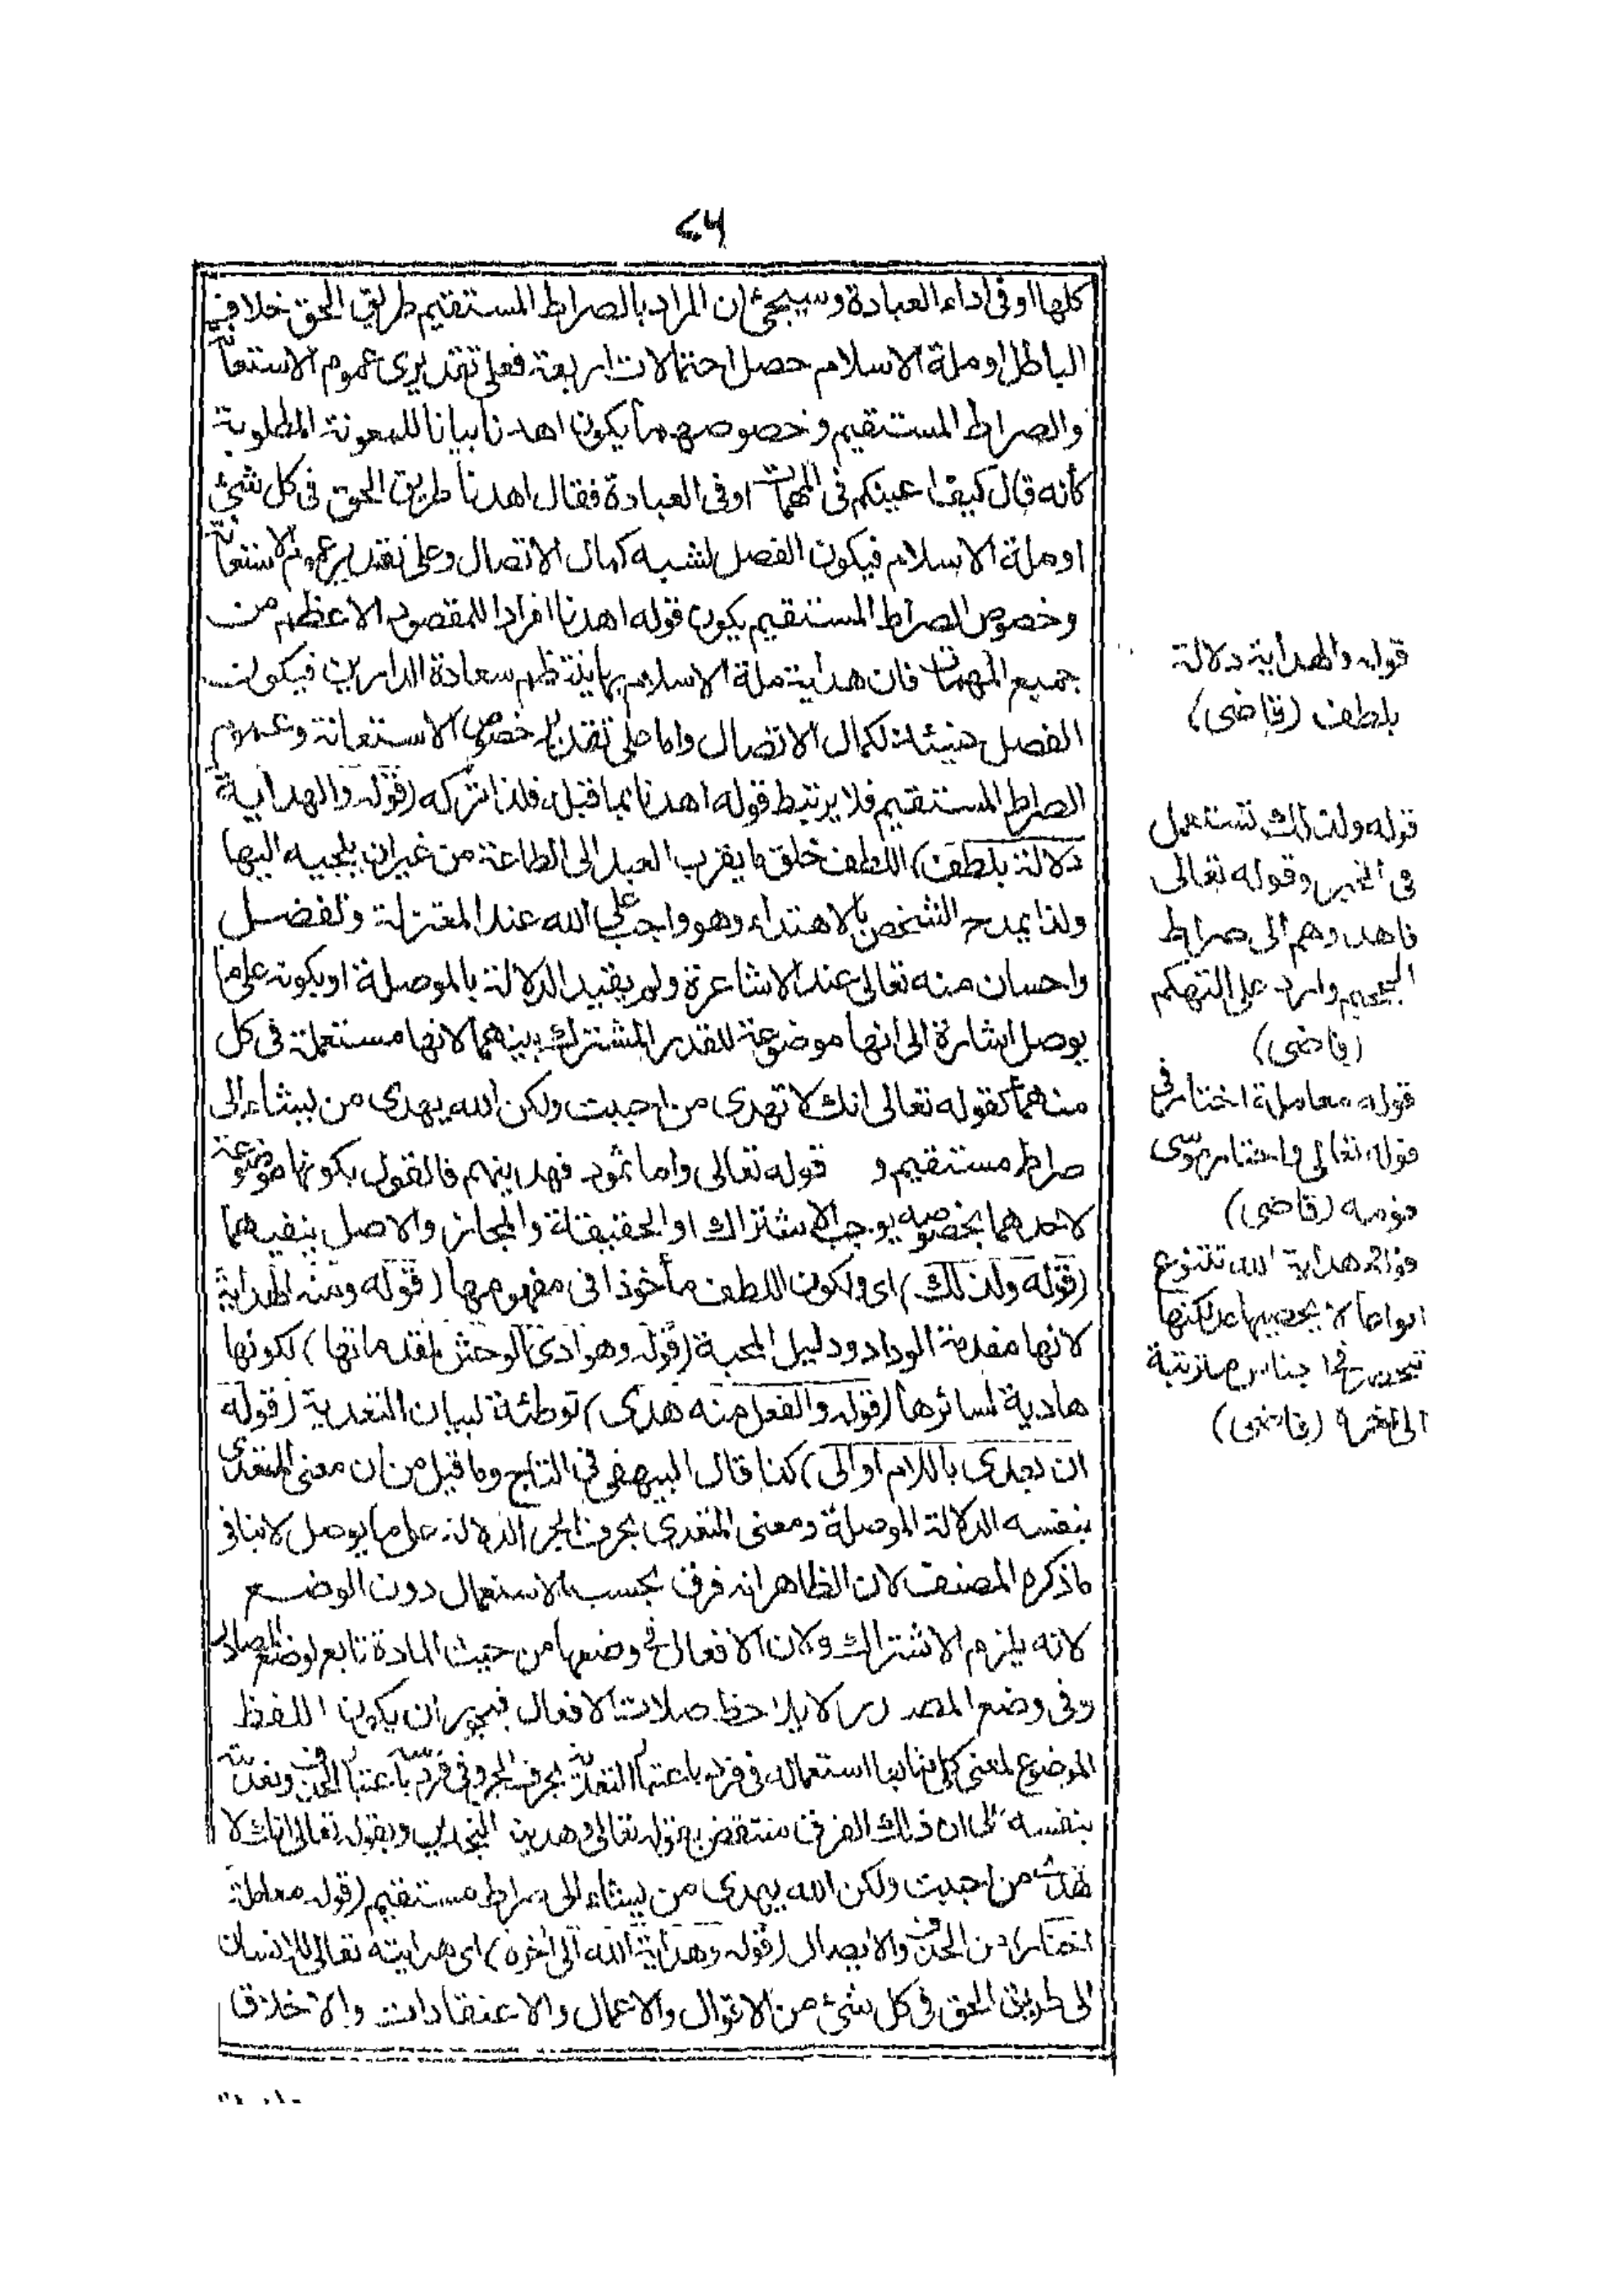 ٤٦
كلها او فى اداء العبادة وسيجئ ان المراد بالصراط المستقيم طريق الحق خلاف
الباطل او ملة الاسلام حصل احتمالات اربعة فعلى تقديرى عموم الاستعانة
والصراط المستقيم وخصوصهما يكون اهدنا بيانا للمعونة المطلوبة
كأنه قال كيف اعينكم فى المهمات او فى العبادة فقال اهدنا طريق الحق فى كل شئ
او ملة الاسلام فيكون الفصل لشبه كمال الاتصال وعلى تقدير عموم الاستعانة
وخصوص الصراط المستقيم يكون قوله اهدنا افرادا للمقصود الاعظم من
جميع المهمات فان هداية ملة الاسلام بها ينتظم سعادة الدارين فيكون
الفصل حينئذ لكمال الاتصال واما على تقدير خصوص الاستعانة وعموم
الصراط المستقيم فلا يرتبط قوله اهدنا بما قبله فلذا تركه (قوله والهداية
دلالة بلطف) اللطف خلق ما يقرب العبد الى الطاعة من غير ان يلجيه اليها
ولذا يمدح الشخص بالاهتداء وهو واجب على الله عند المعتزلة وتفضل
واحسان منه تعالى عند الاشاعرة ولم يقيد الدلالة بالموصلة او بكونه على ما
يوصل اشارة الى انها موضوعة للقدر المشترك بينهما لانها مستعملة فى كل
منهما كقوله تعالى انك لا تهدى من احببت ولكن الله يهدى من يشاء الى
صراط مستقيم و قوله تعالى واما ثمود فهديناهم فالقول بكونها موضوعة
لاحدهما بخصوصه يوجب الاشتراك او الحقيقة والمجاز والاصل ينفيهما
(قوله ولذلك) اى ولكون اللطف مأخوذا فى مفهومها (قوله ومنه الهداية
لانها مقدمة الوداد ودليل المحبة (قوله وهوادى الوحش لمقدماتها) لكونها
هادية لسائرها (قوله والفعل منه هدى) توطئة لبيان التعدية (قوله
ان يعدى باللام او الى) كذا قال البيهقى فى التاج وما قيل من ان معنى المتعدى
بنفسه الدلالة الموصلة ومعنى المتعدى بحرف الجر الدلالة على ما يوصل لا ينافى
ما ذكره المصنف لان الظاهر انه فرق بحسب الاستعمال دون الوضع
لانه يلزم الاشتراك ولان الافعال فى وضعها من حيث المادة تابع لوضع المصادر
وفى وضع المصدر لا يلاحظ صلات الافعال فيجوز ان يكون اللفظ
الموضوع لمعنى كلى استعماله فى فرد باعتبار التعدية بحرف الجر وفى فرد باعتبار الحذف وتعديته
بنفسه على ان ذلك الفرق منتقض بقوله تعالى وهديناه النجدين وبقوله تعالى انك لا
تهدى من احببت ولكن الله يهدى من يشاء الى صراط مستقيم (قوله معاملة
اختار) من الحذف والايصال (قوله وهداية الله الى اخره) اى هدايته تعالى للانسان
الى طريق الحق فى كل شئ من الاقوال والاعمال والاعتقادات والاخلاق
قوله والهداية دلالة
بلطف (قاضى)
قوله ولذلك تستعمل
فى الخير وقوله تعالى
فاهدوهم الى صراط
الجحيم وارد على التهكم
(قاضى)
قوله معاملة اختار فى
قوله تعالى واختار موسى
قومه (قاضى)
قوله هداية الله تتنوع
انواعا لا يحصيها عد لكنها
تنحصر فى اجناس مترتبة
الى اخره (قاضى)